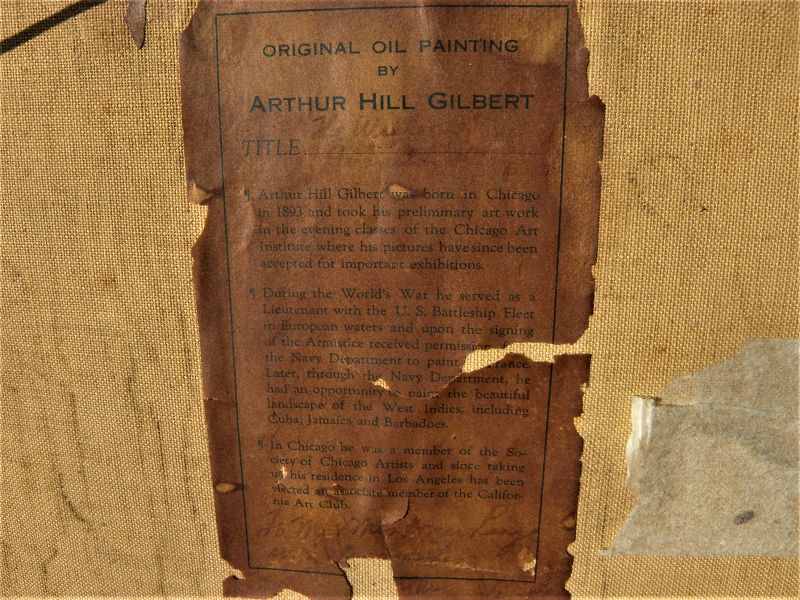 ORIGINAL OIL PAINTING
BY
ARTHUR HILL GILBERT
TITLE
¶ Arthur Hill Gilbert was born in Chicago
in 1893 and took his preliminary art work
in the evening classes of the Chicago Art
Institute where his pictures have since been
accepted for important exhibitions.
¶ During the World's War he served as a
Lieutenant with the U. S. Battleship Fleet
in European waters and upon the signing
of the Armistice received permission
the Navy Department to paint rance.
Later, through the Navy Department, he
had an opportunity to paint the beautiful
landscape of the West Indies, including
Cuba, Jamaica and Barbadoes.
¶ In Chicago he was a member of the So-
ciety of Chicago Artists and since taking
up his residence in Los Angeles has been
elected an associate member of the Califor-
nia Art Club.
To Mr